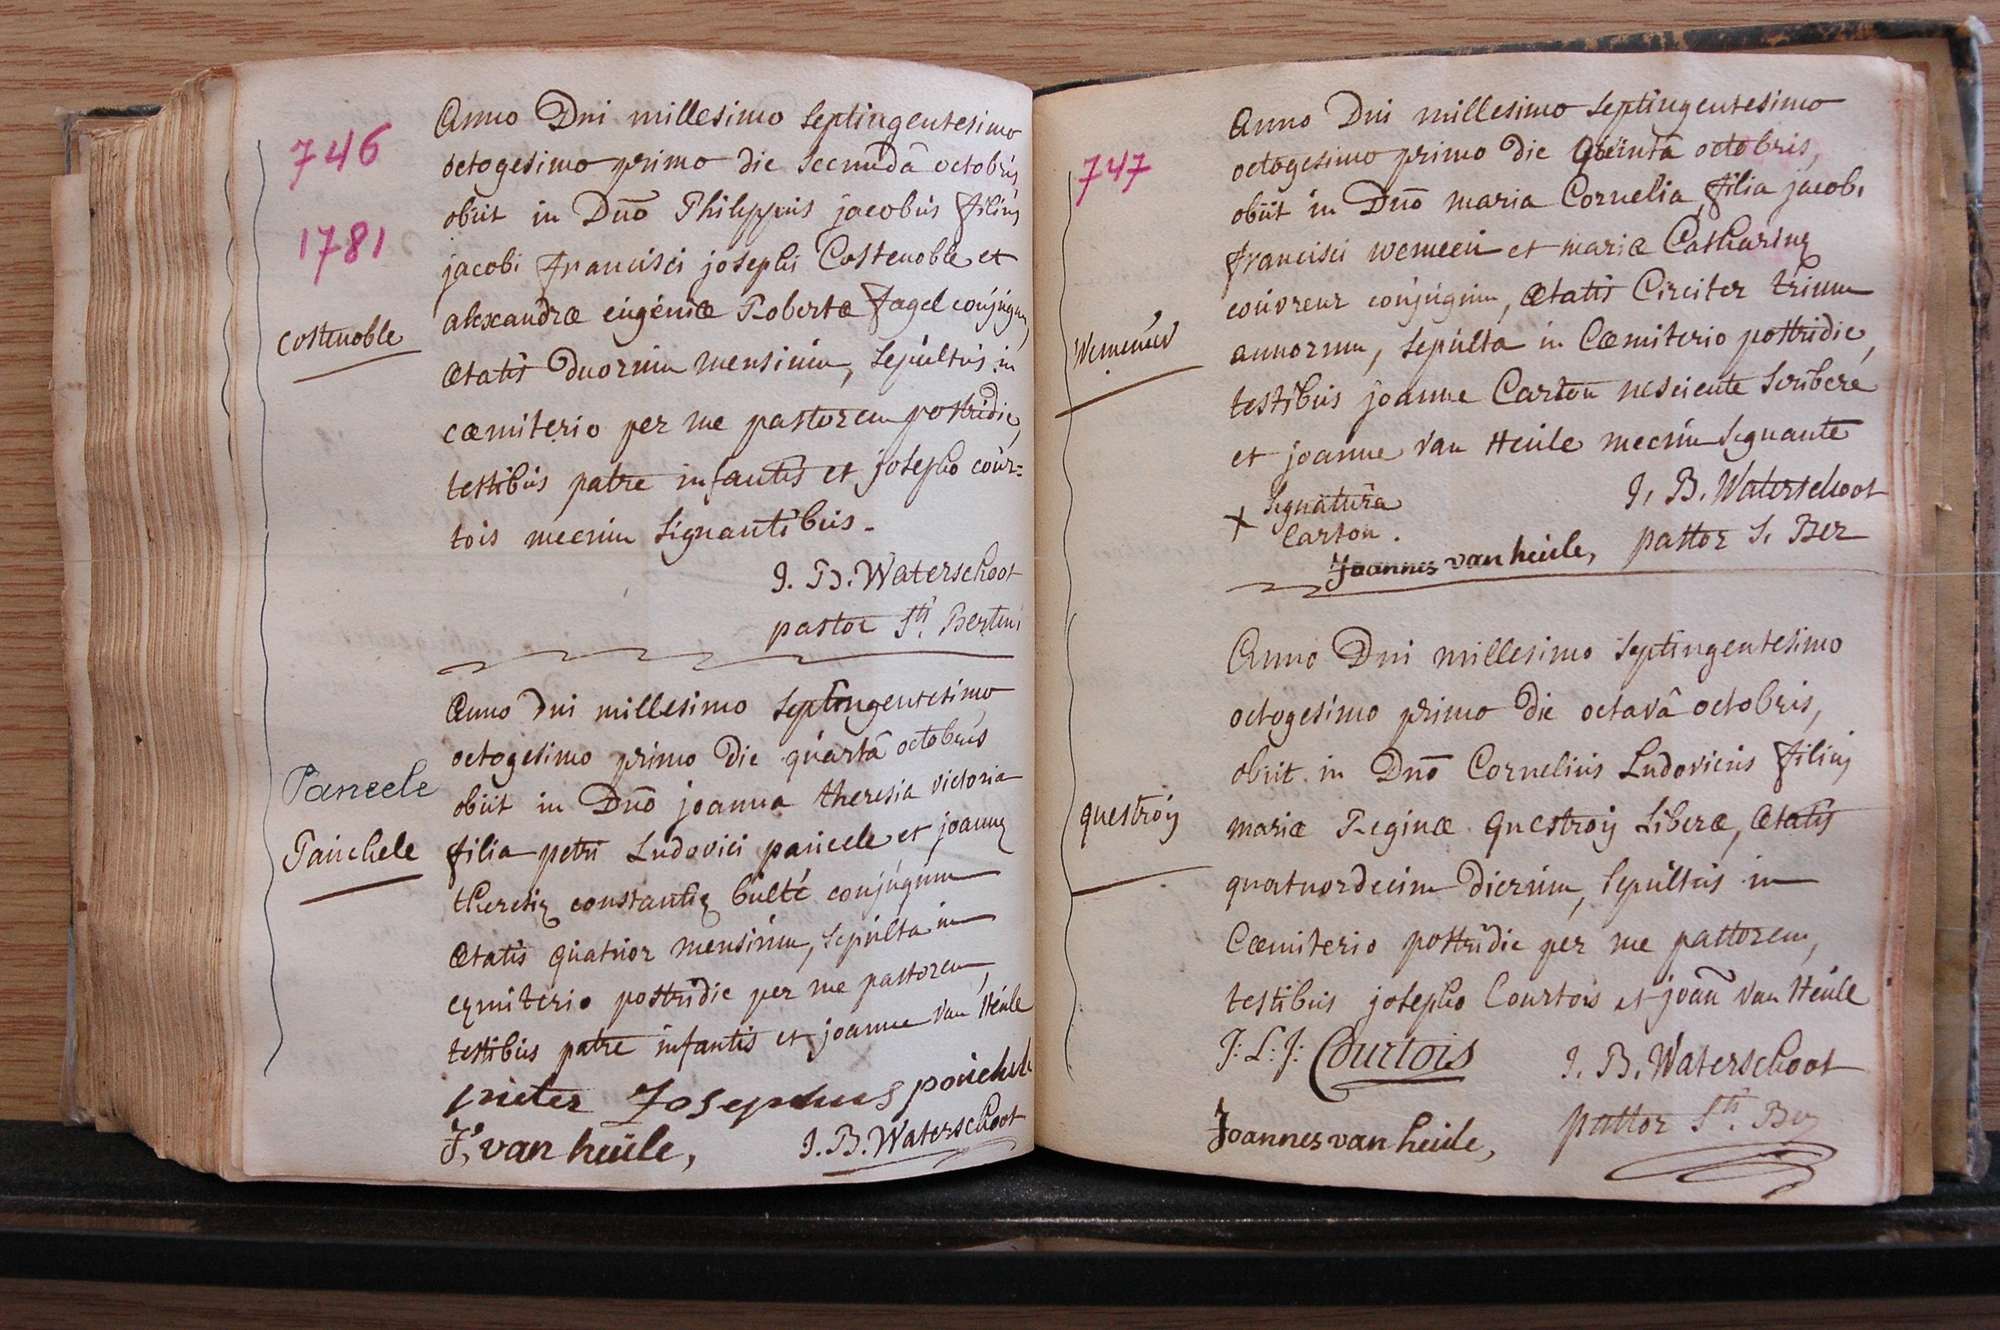 746
1781
Anno Dni millesimo septingentesimo
octogesimo primo die secundâ octobris
obiit in Dño Philippus jacobus filius
jacobi francisci josephi Costenoble et
costenoble
alexandræ eugéniæ Robertæ Fagel conjugum,
ætatis duorum mensium, sepultus in
cæmiterio per me pastorem postridie,
testibus patre infantis et josepho cour=
tois mecum signantibus.
J. B. Waterschoot
pastor Sti. Bertini
Anno dni millesimo septingentesimo
octogesimo primo die quartâ octobris
obiit in Dño joanna theresia victoria
Pancele
filia petri Ludovici pancele et joannę
Panchele
theresię constantię bulté conjugum
ætatis quatuor mensium, sepulta in
cęmiterio postridie per me pastorem,
testibus patre infantis et joanne van Heule
pieter Josephus
J. van heule,
J. B. Waterschoot
747
Anno Dni millesimo septingentesimo
octogesimo primo die quintâ octobris,
obiit in Dño maria Cornelia, filia jacobi
francisci et mariæ Catharinę
couvreur conjugum, ætatis Circiter trium
annorum, sepulta in Cæmiterio postridie,
testibus joanne Carton nesciente scribere
et joanne van Heule mecum signante
J. B. Waterschoot
X signatura
Carton.
pastor S. Ber
Joannes van heule,
Anno Dni millesimo septingentesimo
octogesimo primo die octavâ octobris,
obiit in Dño Cornelius Ludovicus filius
questroÿ
mariæ Reginæ questroÿ Liberæ, ætatis
quatuordecim dierum, sepultus in
Cæmiterio postridie per me pastorem,
testibus josepho Courtois et joañ van Heule
J: L: J: Courtois
J. B. Waterschoot
Joannes van heule,
pastor Sti. Ber